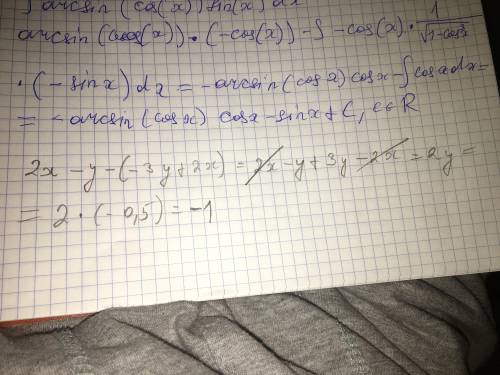 ∫ arcsin(cos(x)) sin(x) dx
arcsin(cos(x)) • (-cos(x)) - ∫ -cos(x) · 1/√(1-cos²x)
· (-sinx) dx = -arcsin(cosx) cosx - ∫ cosx dx =
= -arcsin(cosx) cosx - sinx + C, C∈R
2x - y - (-3y + 2x) = 2x - y + 3y - 2x = 2y =
= 2 · (-0,5) = -1